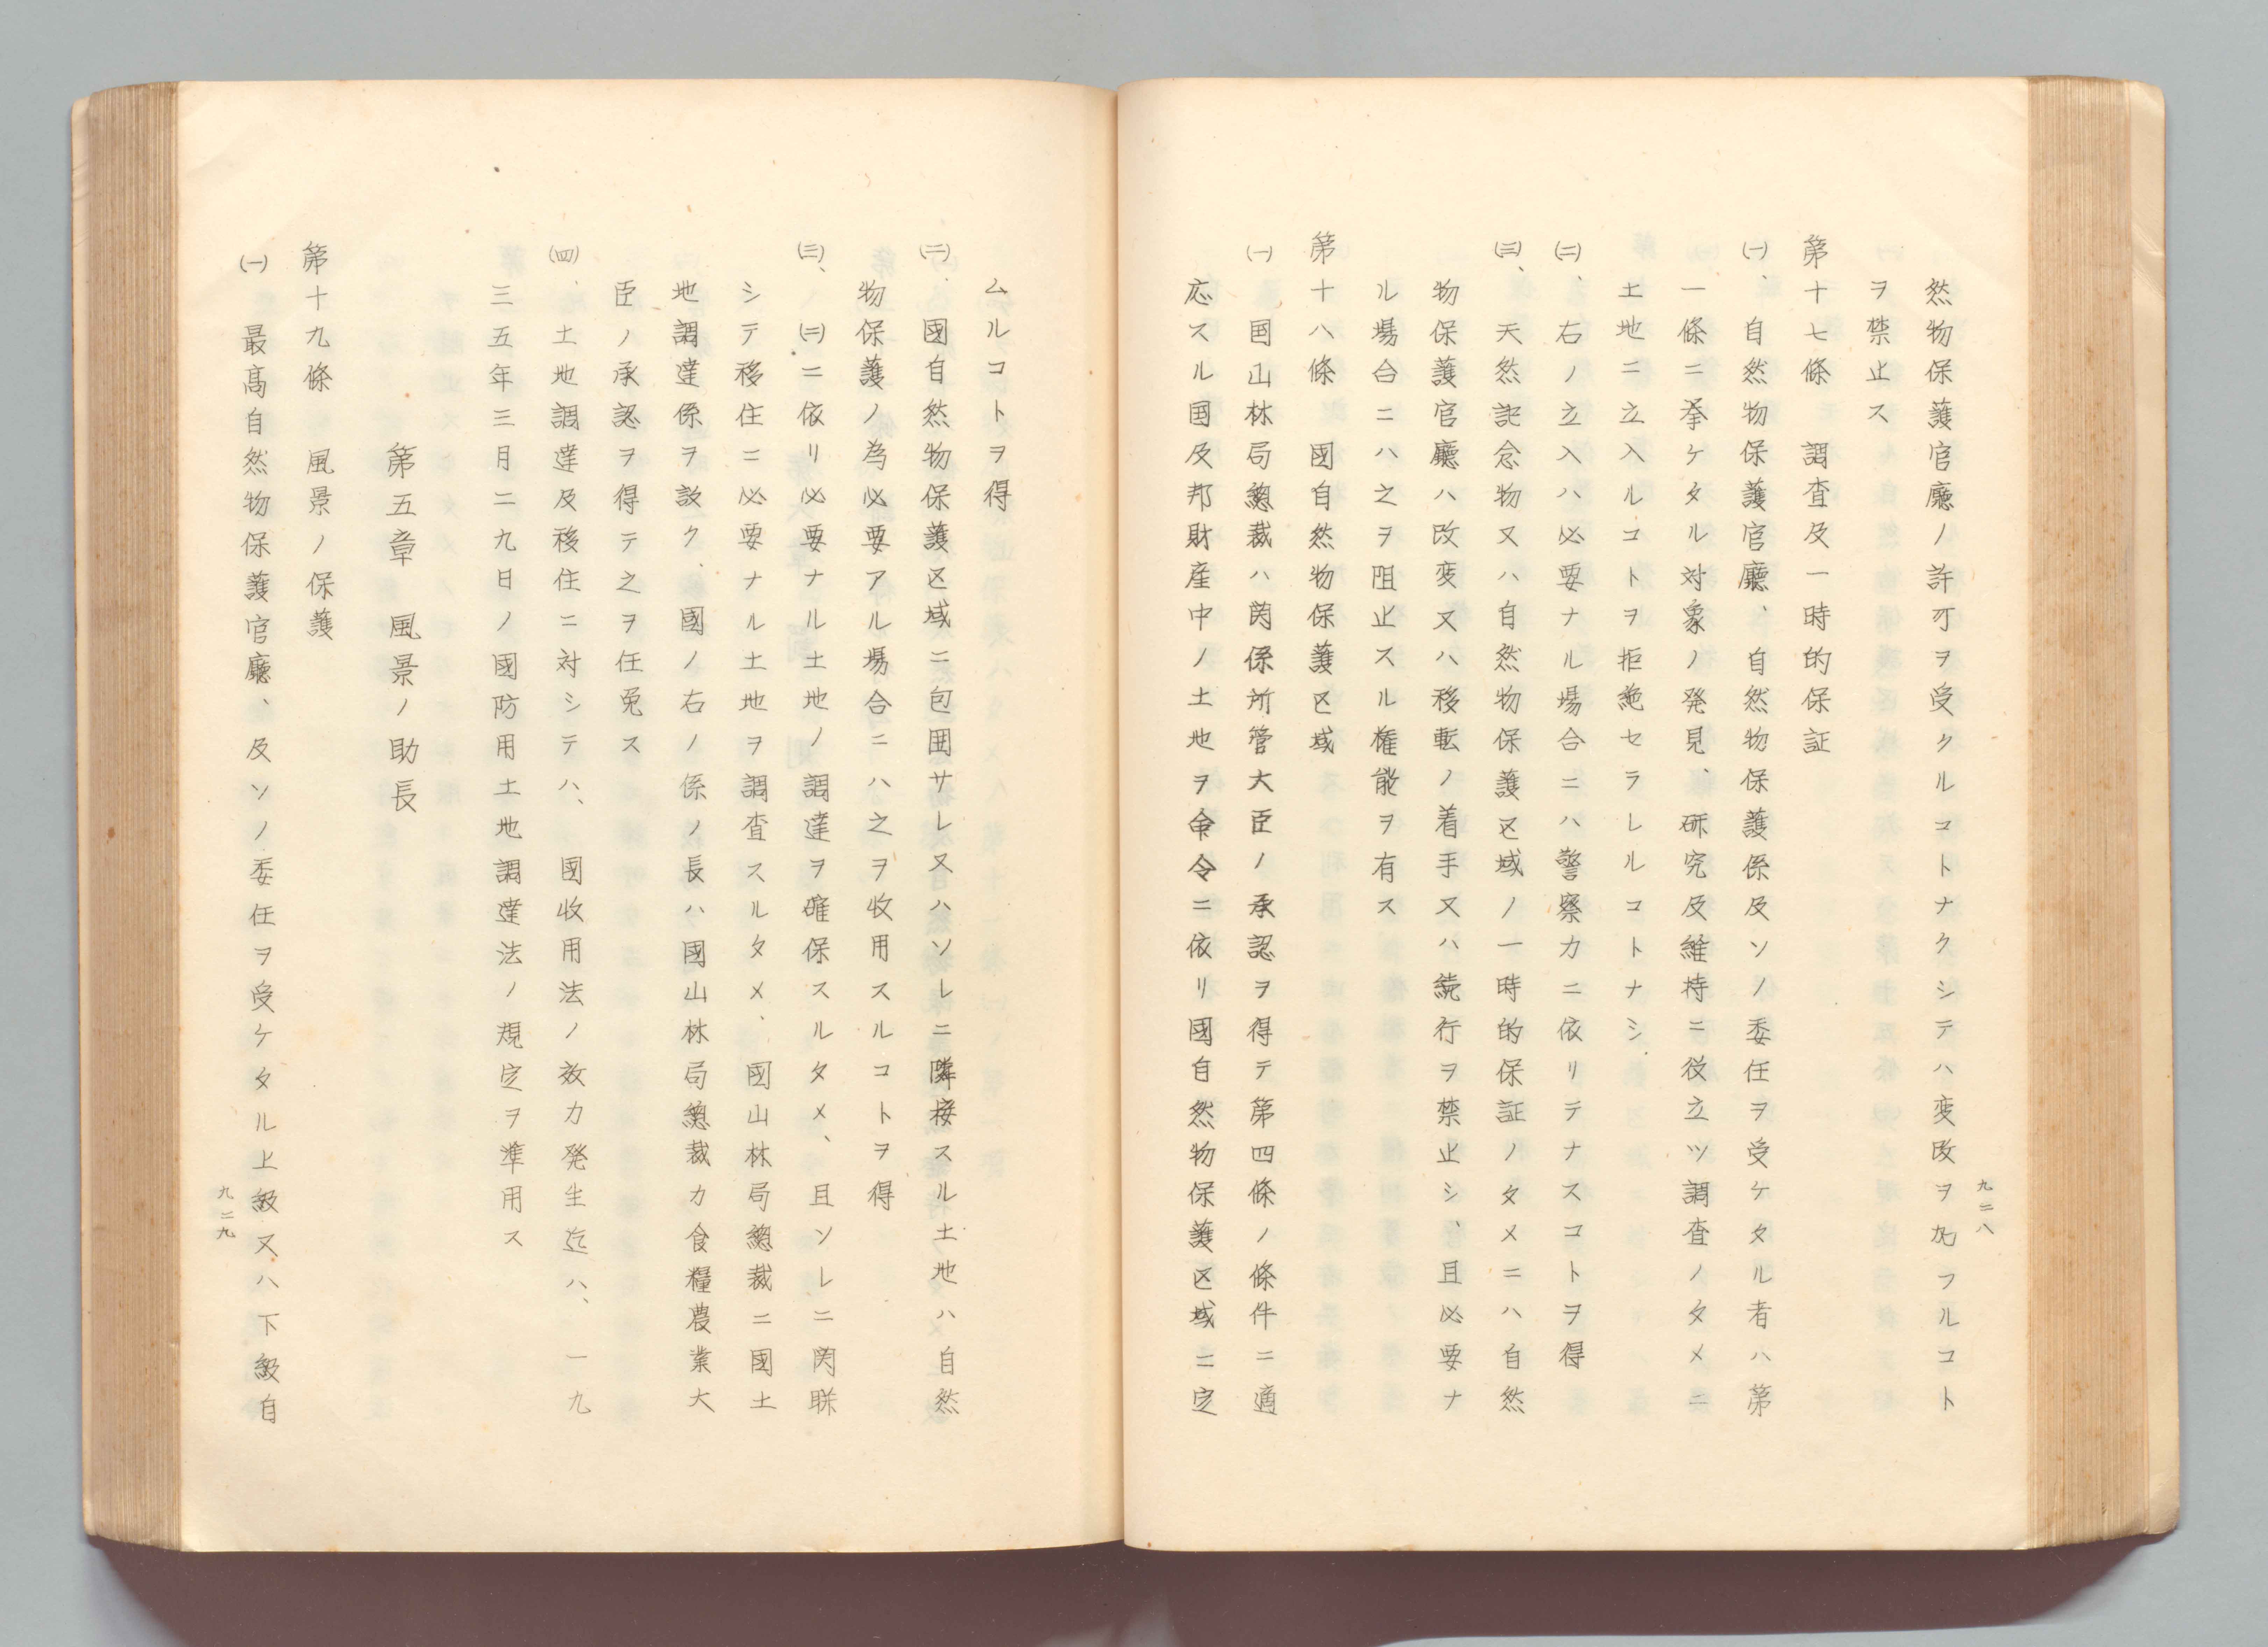 然物保護官廳ノ許可ヲ受クルコトナクシテハ変改ヲ加フルコト
ヲ禁止ス
第十七條　調査及一時的保証
㈠、自然物保護官廳、自然物保護係及ソノ委任ヲ受ケタル者ハ第
一條ニ挙ケタル対象ノ発見、研究及維持ニ役立ツ調査ノタメニ
土地ニ立入ルコトヲ拒絶セラレルコトナシ
㈡、右ノ立入ハ必要ナル場合ニハ警察力ニ依リテナスコトヲ得
㈢、天然記念物又ハ自然物保護区域ノ一時的保証ノタメニハ自然
物保護官廳ハ改変又ハ移転ノ着手又ハ続行ヲ禁止シ、且必要ナ
ル場合ニハ之ヲ阻止スル権能ヲ有ス
第十八條　國自然物保護区域
㈠　国山林局總裁ハ関係所管大臣ノ承認ヲ得テ第四條ノ條件ニ適
応スル国及邦財産中ノ土地ヲ命令ニ依リ國自然物保護区域ニ定
九二八
ムルコトヲ得
㈡、國自然物保護区域ニ包囲サレ又ハソレニ隣接スル土地ハ自然
物保護ノ為必要アル場合ニハ之ヲ收用スルコトヲ得
㈢、㈡ニ依リ必要ナル土地ノ調達ヲ確保スルタメ、且ソレニ関聯
シテ移住ニ必要ナル土地ヲ調査スルタメ、國山林局總裁ニ國土
地調達係ヲ設ク、國ノ右ノ係ノ長ハ國山林局總裁カ食糧農業大
臣ノ承認ヲ得テ之ヲ任免ス
㈣、土地調達及移住ニ対シテハ、國收用法ノ效力発生迄ハ、一九
三五年三月二九日ノ國防用土地調達法ノ規定ヲ準用ス
第五章　風景ノ助長
第十九條　風景ノ保護
㈠　最高自然物保護官廳、及ソノ委任ヲ受ケタル上級又ハ下級自
九二九